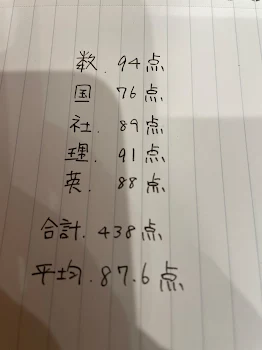 数. 94点
国 76点
社. 89点
理. 91点
英. 88点
合計. 438点
平均. 87.6点